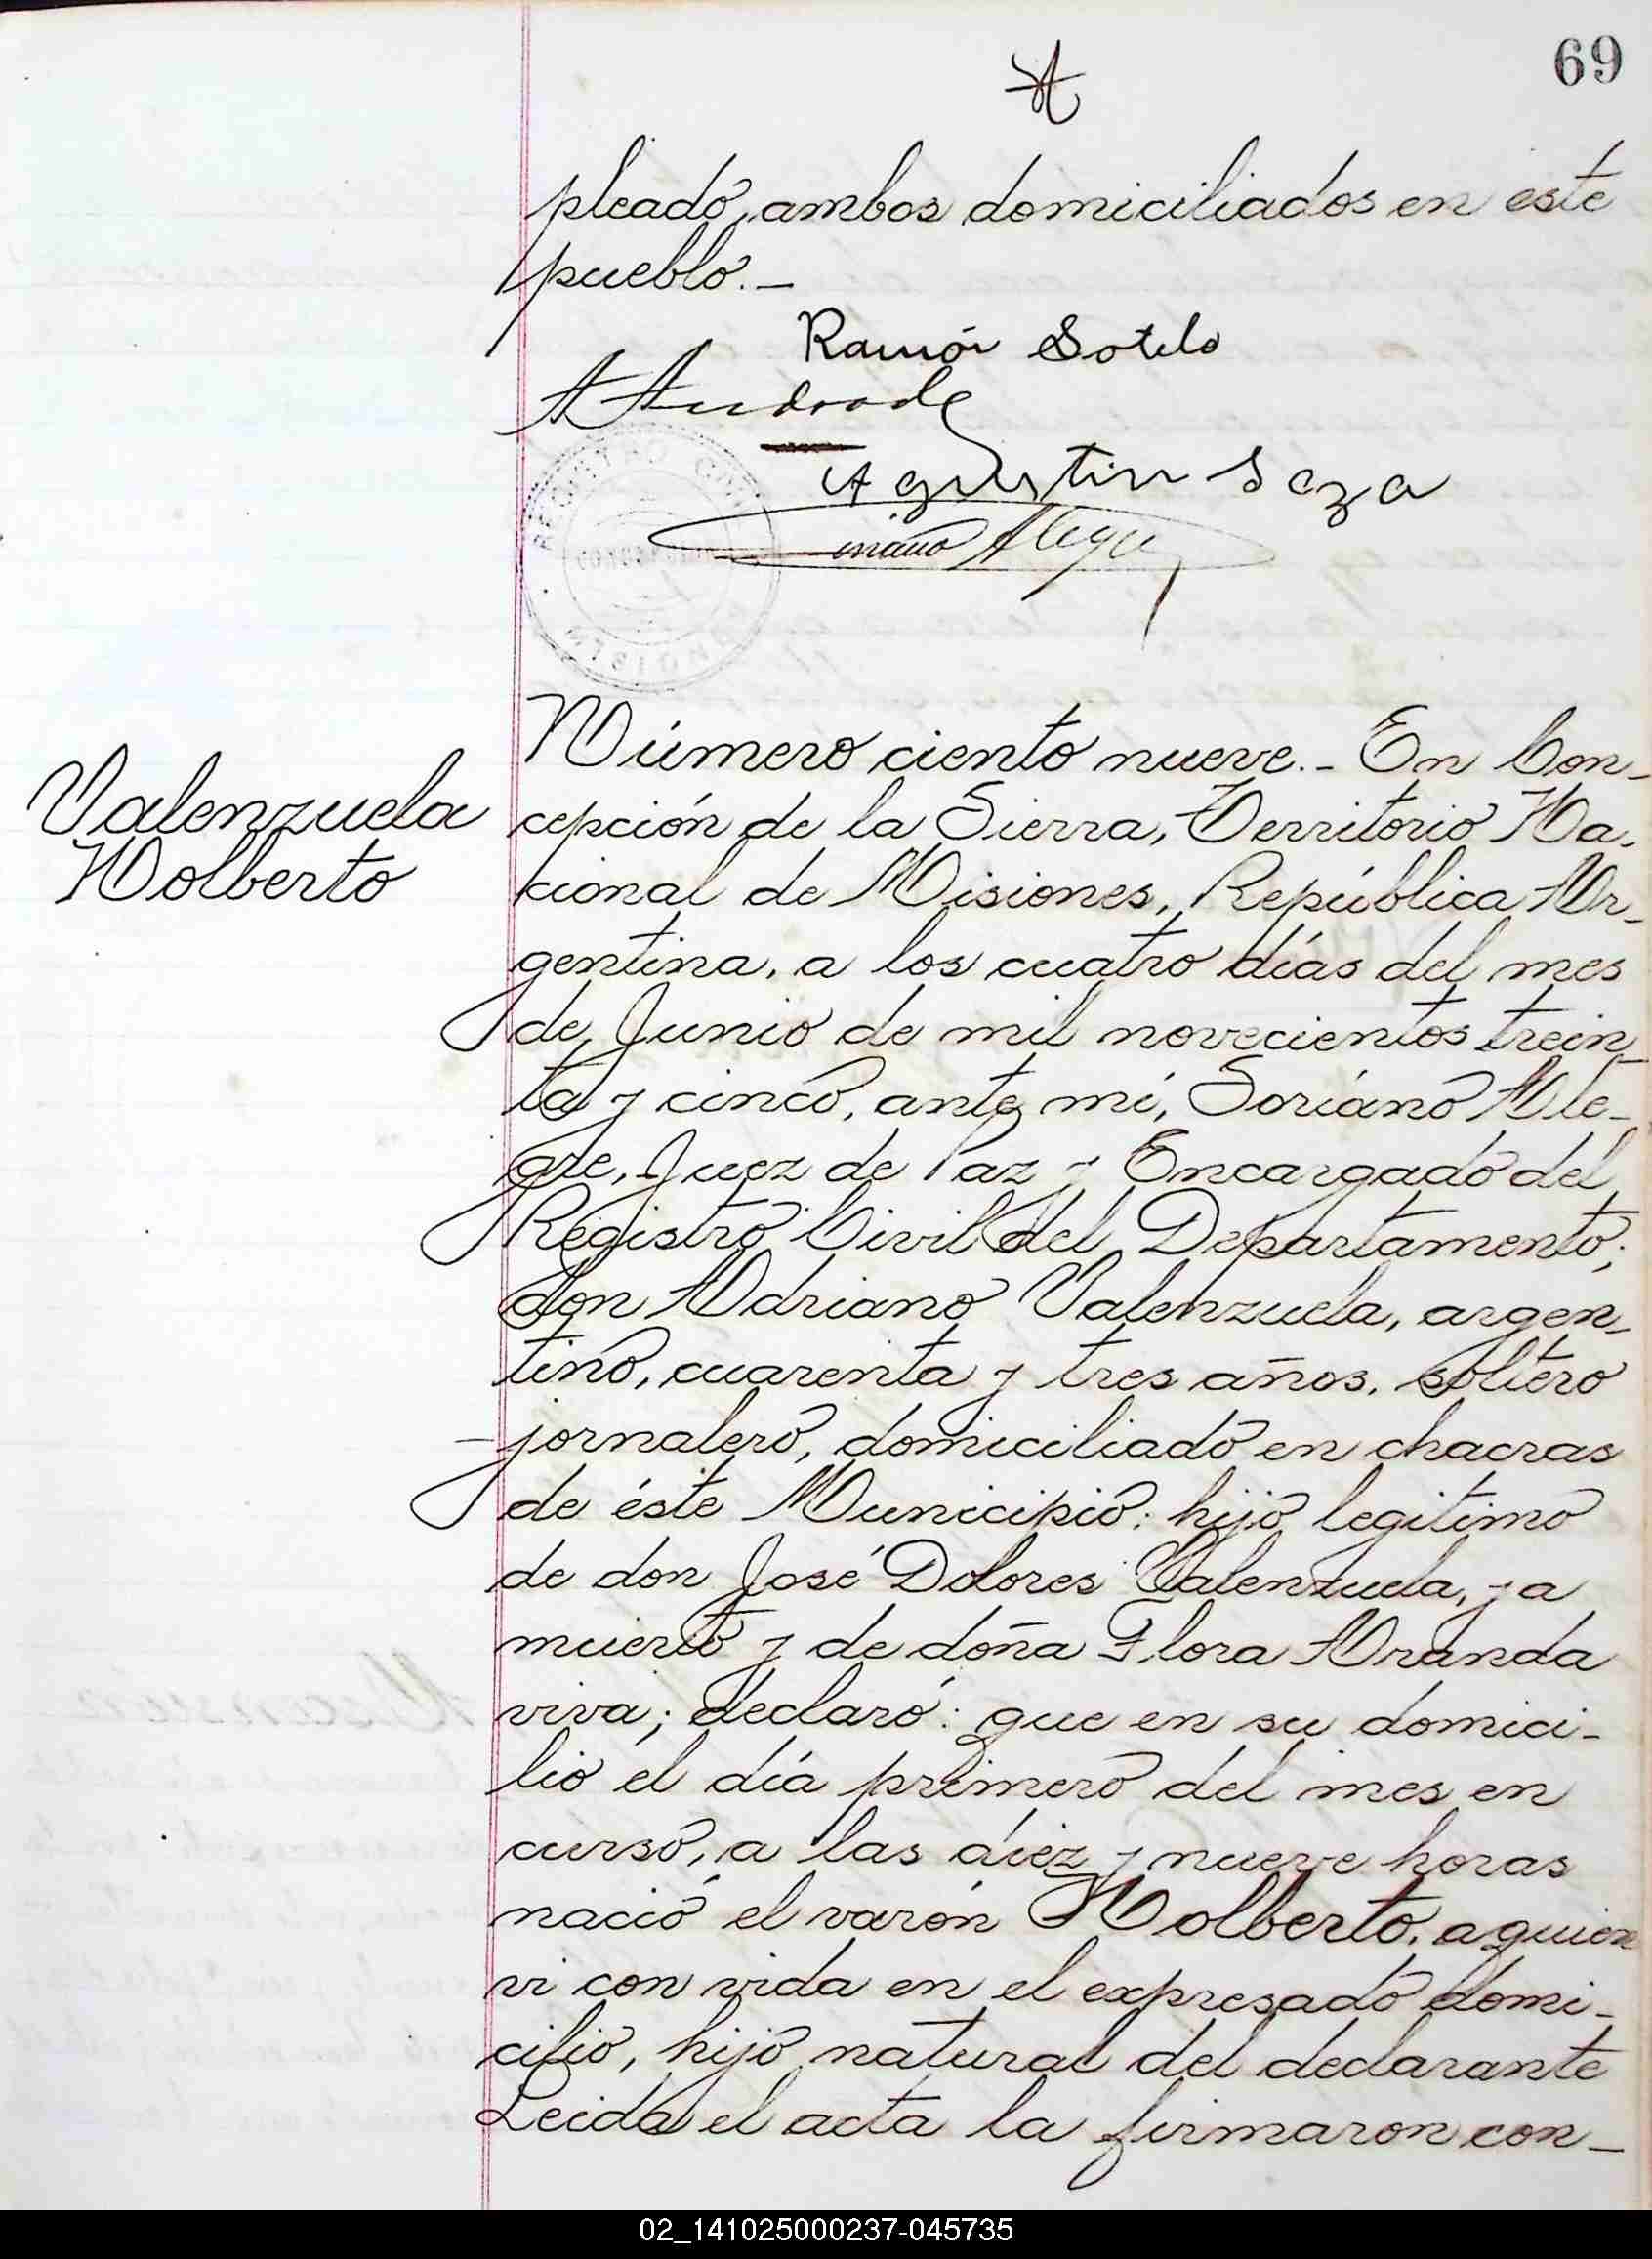 69
pleado, ambos domiciliados en este
pueblo.-
Ramón Sotelo
A Andrade
Agustin Soza
REGISTRO CIVIL
MISIONES
Alegre
Valenzuela
Nolberto
Número ciento nueve.- En Con-
cepción de la Sierra, Territorio Na-
cional de Misiones, República Ar-
gentina, a los cuatro días del mes
de Junio de mil novecientos trein
ta y cinco, ante mí, Soriano Ale-
gre, Juez de Paz y Encargado del
Registro Civil del Departamento;
don Adriano Valenzuela, argen-
tino, cuarenta y tres años, soltero
jornalero, domiciliado en chacras
de éste Municipio: hijo legitimo
de don José Dolores Valenzuela, ya
muerto y de doña Flora Aranda
viva; declaró: que en su domici-
lio el día primero del mes en
curso, a las diez y nueve horas
nació el varón Nolberto, a quien
vi con vida en el expresado domi-
cilio, hijo natural del declarante
Leida el acta la firmaron con-
02_141025000237-045735